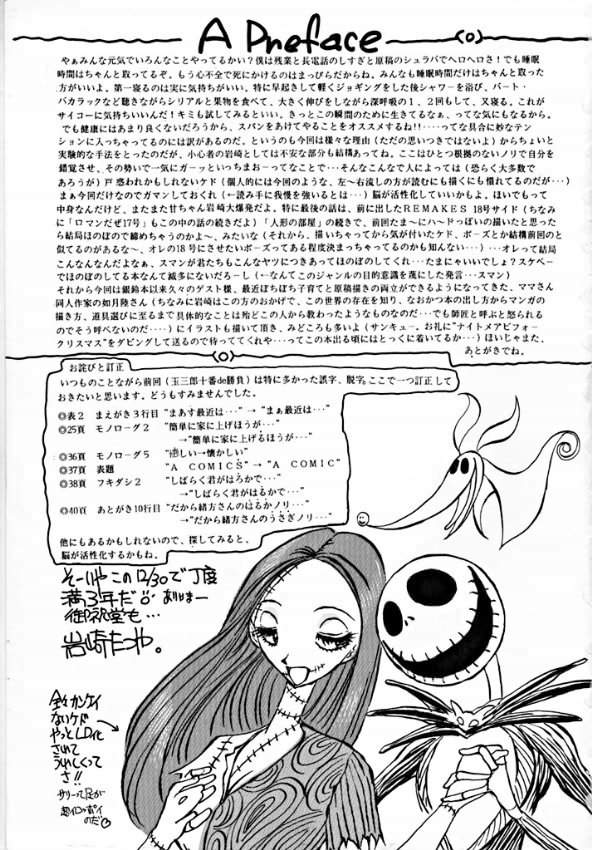 A Preface
やぁみんな元気でいろんなことやってるかい？僕は残業と長電話のしすぎと原稿のシュラバでヘロヘロさ！でも睡眠
時間はちゃんと取ってるぞ。もう心不全で死にかけるのはまっぴらだからね。みんなも睡眠時間だけはちゃんと取った
方がいいよ。第一寝るのは実に気持ちがいい。特に早起きして軽くジョギングをした後シャワーを浴び、バート・
バカラックなど聴きながらシリアルと果物を食べて、大きく伸びをしながら深呼吸の１、２回もして、又寝る。これが
サイコーに気持ちいいんだ！キミも試してみるといい。きっとこの瞬間のために生きてるなぁ、って気になるから。
でも健康にはあまり良くないだろうから、スパンをあけてやることをオススメするね！！‥‥って具合に妙なテン
ションに入っちゃってるのには訳があるのだ。というのも今回は様々な理由（ただの思いつきではないよ）からちょいと
実験的な手法をとったのだが、小心者の岩崎としては不安な部分も結構あってね。ここはひとつ根拠のないノリで自分を
錯覚させ、その勢いで一気にガーッといっちまおーってなことで‥‥そんなこんなで人によっては（恐らく大多数で
あろうが）戸惑われるかもしれないケド（個人的には今回のような、左〜右流しの方が読むにも描くにも慣れてるのだが‥‥）
まぁ今回だけなのでガマンしておくれ（←読み手に我慢を強いるとは‥‥）脳が活性化していいかもよ。ほいでもって
中身なんだけど、またまた甘ちゃん岩崎大爆発だよ。特に最後の話は、前に出したＲＥＭＡＫＥＳ 18号サイド（ちなみ
に「ロマンだぜ17号」もこの中の話の続きだよ）「人形の部屋」の続きで、前回たま〜にハードっぽいの描いたと思った
ら結局ほのぼので締めちゃうのかよ〜、みたいな（それから、描いちゃってから気が付いたケド、ポーズとか結構前回のと
似てるのがあるな〜、オレの18号にさせたいポーズってある程度決まっちゃってるのかも知んない‥‥）‥‥オレって結局
こんなんなんだよなぁ、スマンが君たちもこんなヤツにつきあってほのぼのしてくれ‥‥たまにゃいいでしょ？スケベー
でほのぼのしてる本なんて滅多にないだろーし（←なんてこのジャンルの目的意識を蔑にした発言‥‥スマン）
それから今回は銀鈴本以来久々のゲスト様、最近ぼちぼち子育てと原稿描きの両立ができるようになってきた、ママさん
同人作家の如月陸さん（ちなみに岩崎はこの方のおかげで、この世界の存在を知り、なおかつ本の出し方からマンガの
描き方、道具選びに至るまで具体的なことは殆どこの人から教わったようなものなのだ‥‥でも師匠と呼ぶと怒られる
のでそう呼べないのだ‥‥）にイラストも描いて頂き、みどころも多いよ（サンキュー。お礼に“ナイトメアビフォー
クリスマス”をダビングして送るので待っててくれや‥‥ってこの本出る頃にはとっくに着いてるか‥‥）ほいじゃまた、
あとがきでね。
お詫びと訂正
いつものことながら前回（玉三郎十番de勝負）は特に多かった誤字、脱字。ここで一つ訂正して
おきたいと思います。どうもすみませんでした。
◎表２　まえがき３行目　“まあす最近は‥‥”→“まぁ最近は‥‥”
◎25頁　モノローグ２　“簡単に家に上げほうが‥‥”
→“簡単に家に上げるほうが‥‥”
◎36頁　モノローグ５　“嬉しい→懐かしい”
◎37頁　表題　“A COMICS”→“A COMIC”
◎38頁　フキダシ２　“しばらく君がはろかで‥‥”
→“しばらく君がはるかで‥‥”
◎40頁　あとがき10行目　“だから緒方さんのはるかノリ‥‥”
→“だから緒方さんのうさぎノリ‥‥”
他にもあるかもしれないので、探してみると、
脳が活性化するかもね。
そーいやこの12/30で丁度
満3年だ
御祝堂も…
岩崎たつや。
全々カンケイ
ないケド
やっとLD化
されて
うれしくって
さ!!
サリーって足が
超イロッポイ
のだ♡